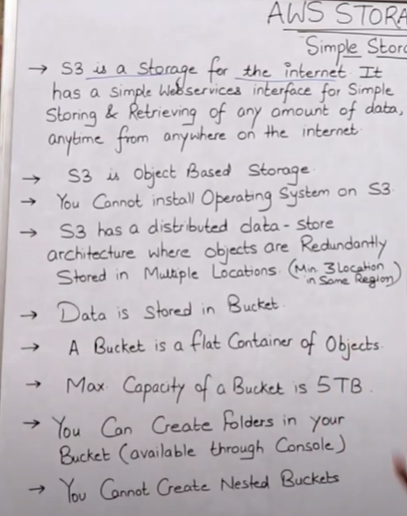 AWS STORA
Simple Stora
→ S3 is a Storage for the internet. It
has a simple Webservices interface for Simple
Storing & Retrieving of any amount of data,
anytime from anywhere on the internet.
→ S3 is Object Based Storage.
→ You Cannot install Operating System on S3.
→ S3 has a distributed data-store
architecture where objects are Redundantly
Stored in Multiple Locations. (Min. 3 Location
in Same Region)
→ Data is Stored in Bucket.
→ A Bucket is a flat Container of Objects.
→ Max. Capacity of a Bucket is 5TB.
→ You Can Create Folders in your
Bucket (available through Console)
→ You Cannot Create Nested Buckets